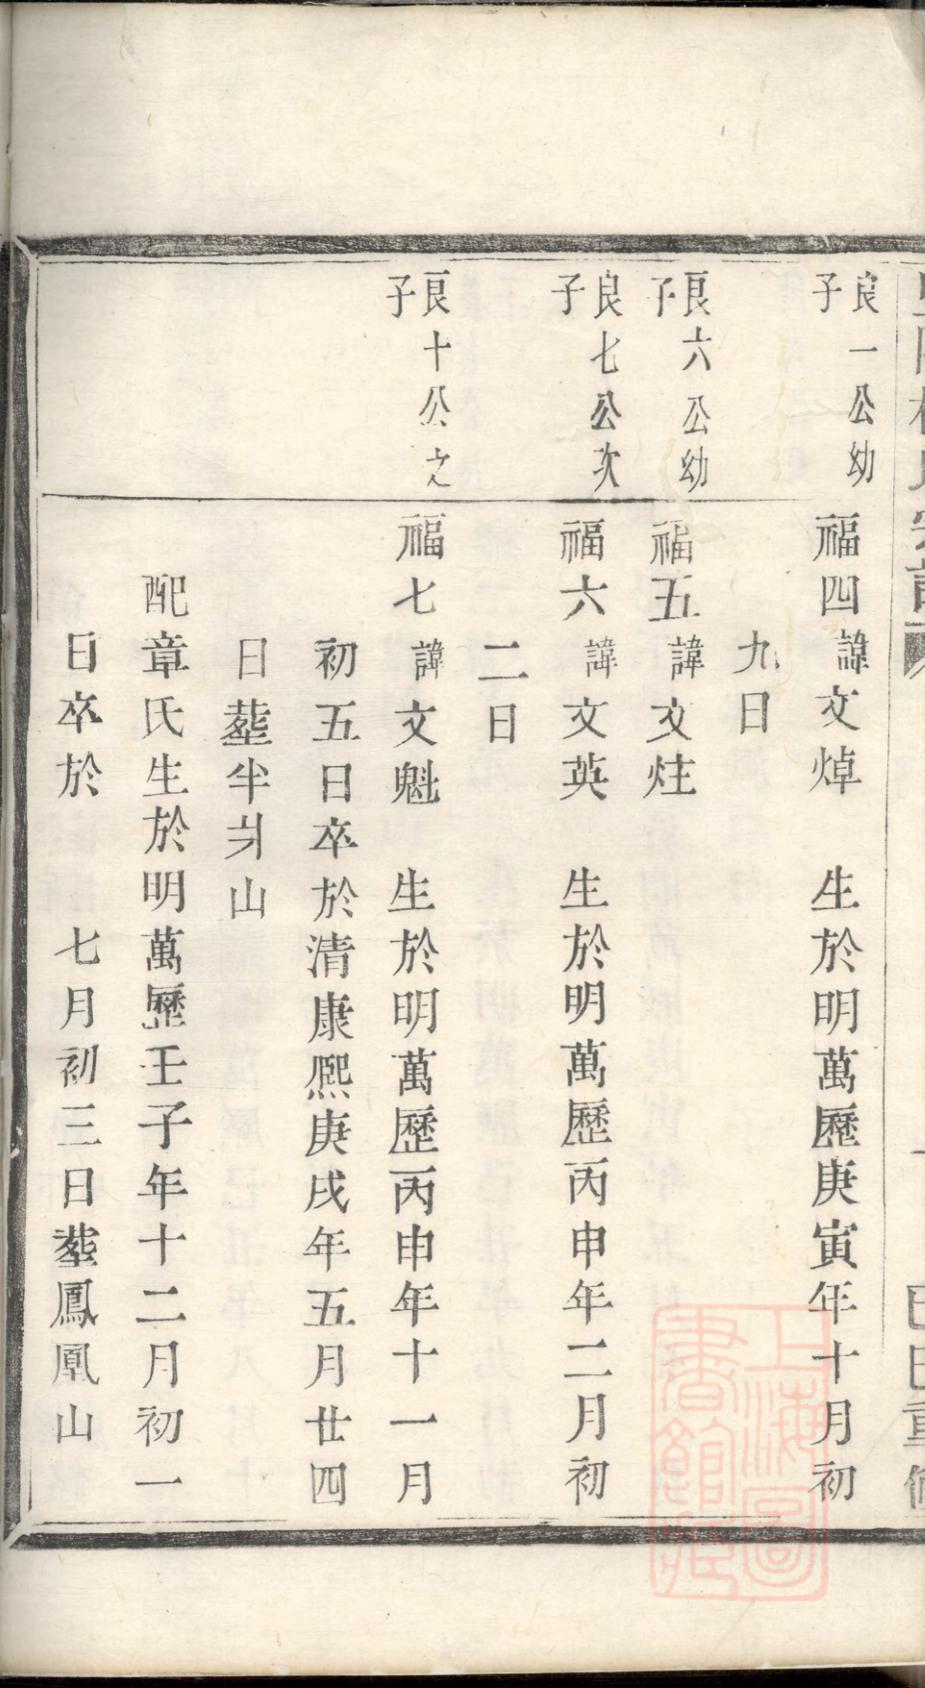 宗譜
重修
良一公幼
子
福四諱文焯　生於明萬歷庚寅年十月初
九日
良六公幼
子
福五諱文炷
良七公次
子
福六諱文英　生於明萬歷丙申年二月初
二日
良十公之
子
福七諱文魁　生於明萬歷丙申年十一月
初五日卒於清康熙庚戌年五月廿四
日塟半爿山
配章氏生於明萬歷壬子年十二月初一
日卒於　　七月初三日塟鳳凰山
上海圖
書館藏